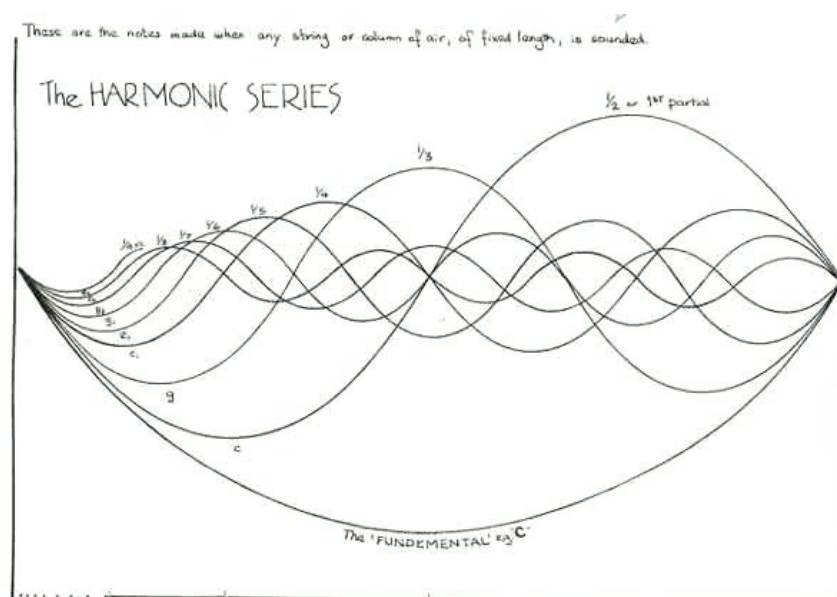 These are the notes made when any string or column of air, of fixed length, is sounded.
The HARMONIC SERIES
1/2 or 1ST partial
1/3
1/4
1/5
1/6
1/7
1/8
g
c
The 'FUNDEMENTAL' e.g. "C"